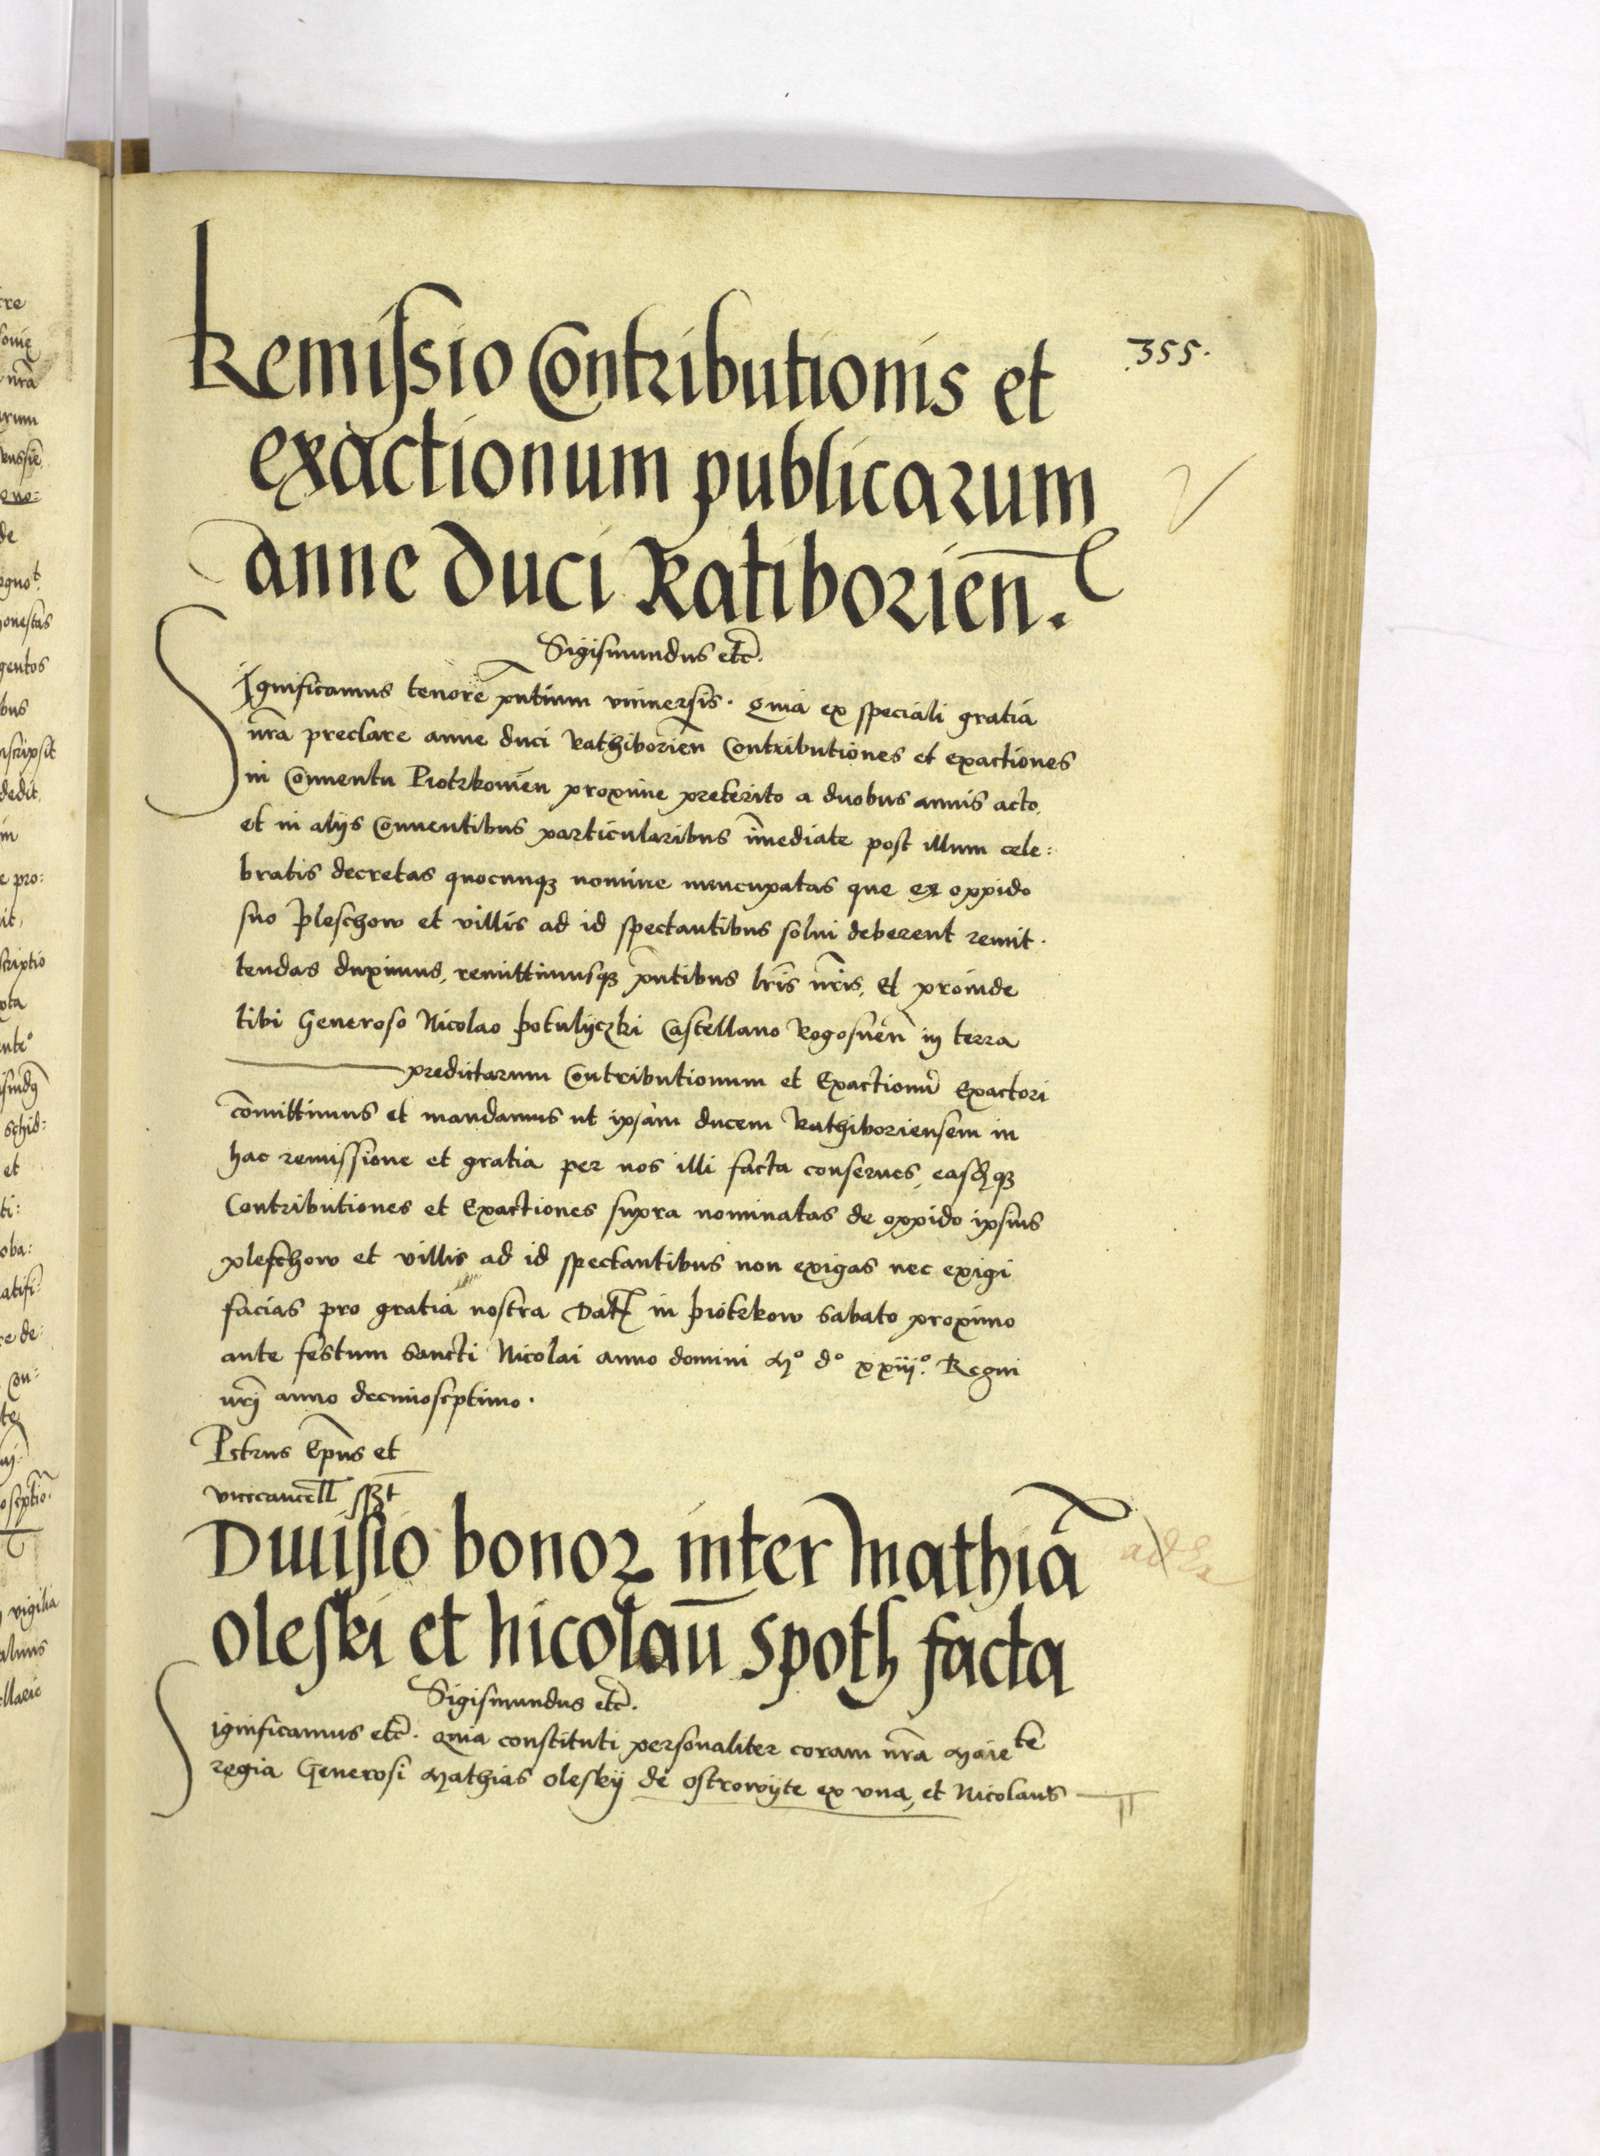 355.
Remissio Contributionis et
exactionum publicarum
anne duci Ratiborien̄.
Sigismundus etc̄.
Significamus tenore pn̄tium vniuersis. Quia ex speciali gratia
nr̄a preclare anne duci Rathiborien̄ Contributiones et exactiones
in Conuentu Piotrkouien̄ proxime preterito a duobus annis acto,
et in alijs Conuentibus particularibus im̄ediate post illum cele:
bratis decretas quocunqꝫ nomine nuncupatas que ex oppido
suo Pleschow et villis ad id spectantibus solui deberent remit.
tendas duximus, remittimusqꝫ pn̄tibus lr̄is nr̄is, Et proinde
tibi Generoso Nicolao Potulyczki Castellano Rogosnen̄ in terra
predictarum Contributionum et Exactionū Exactori
com̄ittimus et mandamus ut ipsam ducem Rathiboriensem in
hac remissione et gratia per nos illi facta conserues, easdqꝫ
Contributiones et Exactiones supra nominatas de oppido ipsius
pleschow et villis ad id spectantibus non exigas nec exigi
facias pro gratia nostra Datꝭ in Piotrkow Sabato proximo
ante festum Sancti Nicolai anno domini Mº dº xxiijº. Regni
nrj̄ anno decimoseptimo.
Petrus Epūs et
vicecancell̄ ssꝫt
Diuisio bonoꝝ inter Mathiā
oleski et Nicolaū Spoth facta
Sigismundus etc̄.
Significamus etc̄. Quia constituti personaliter coram nr̄a Maiete
regia Generosi Mathias Oleskij de Ostrowyte ex vna, et Nicolaus